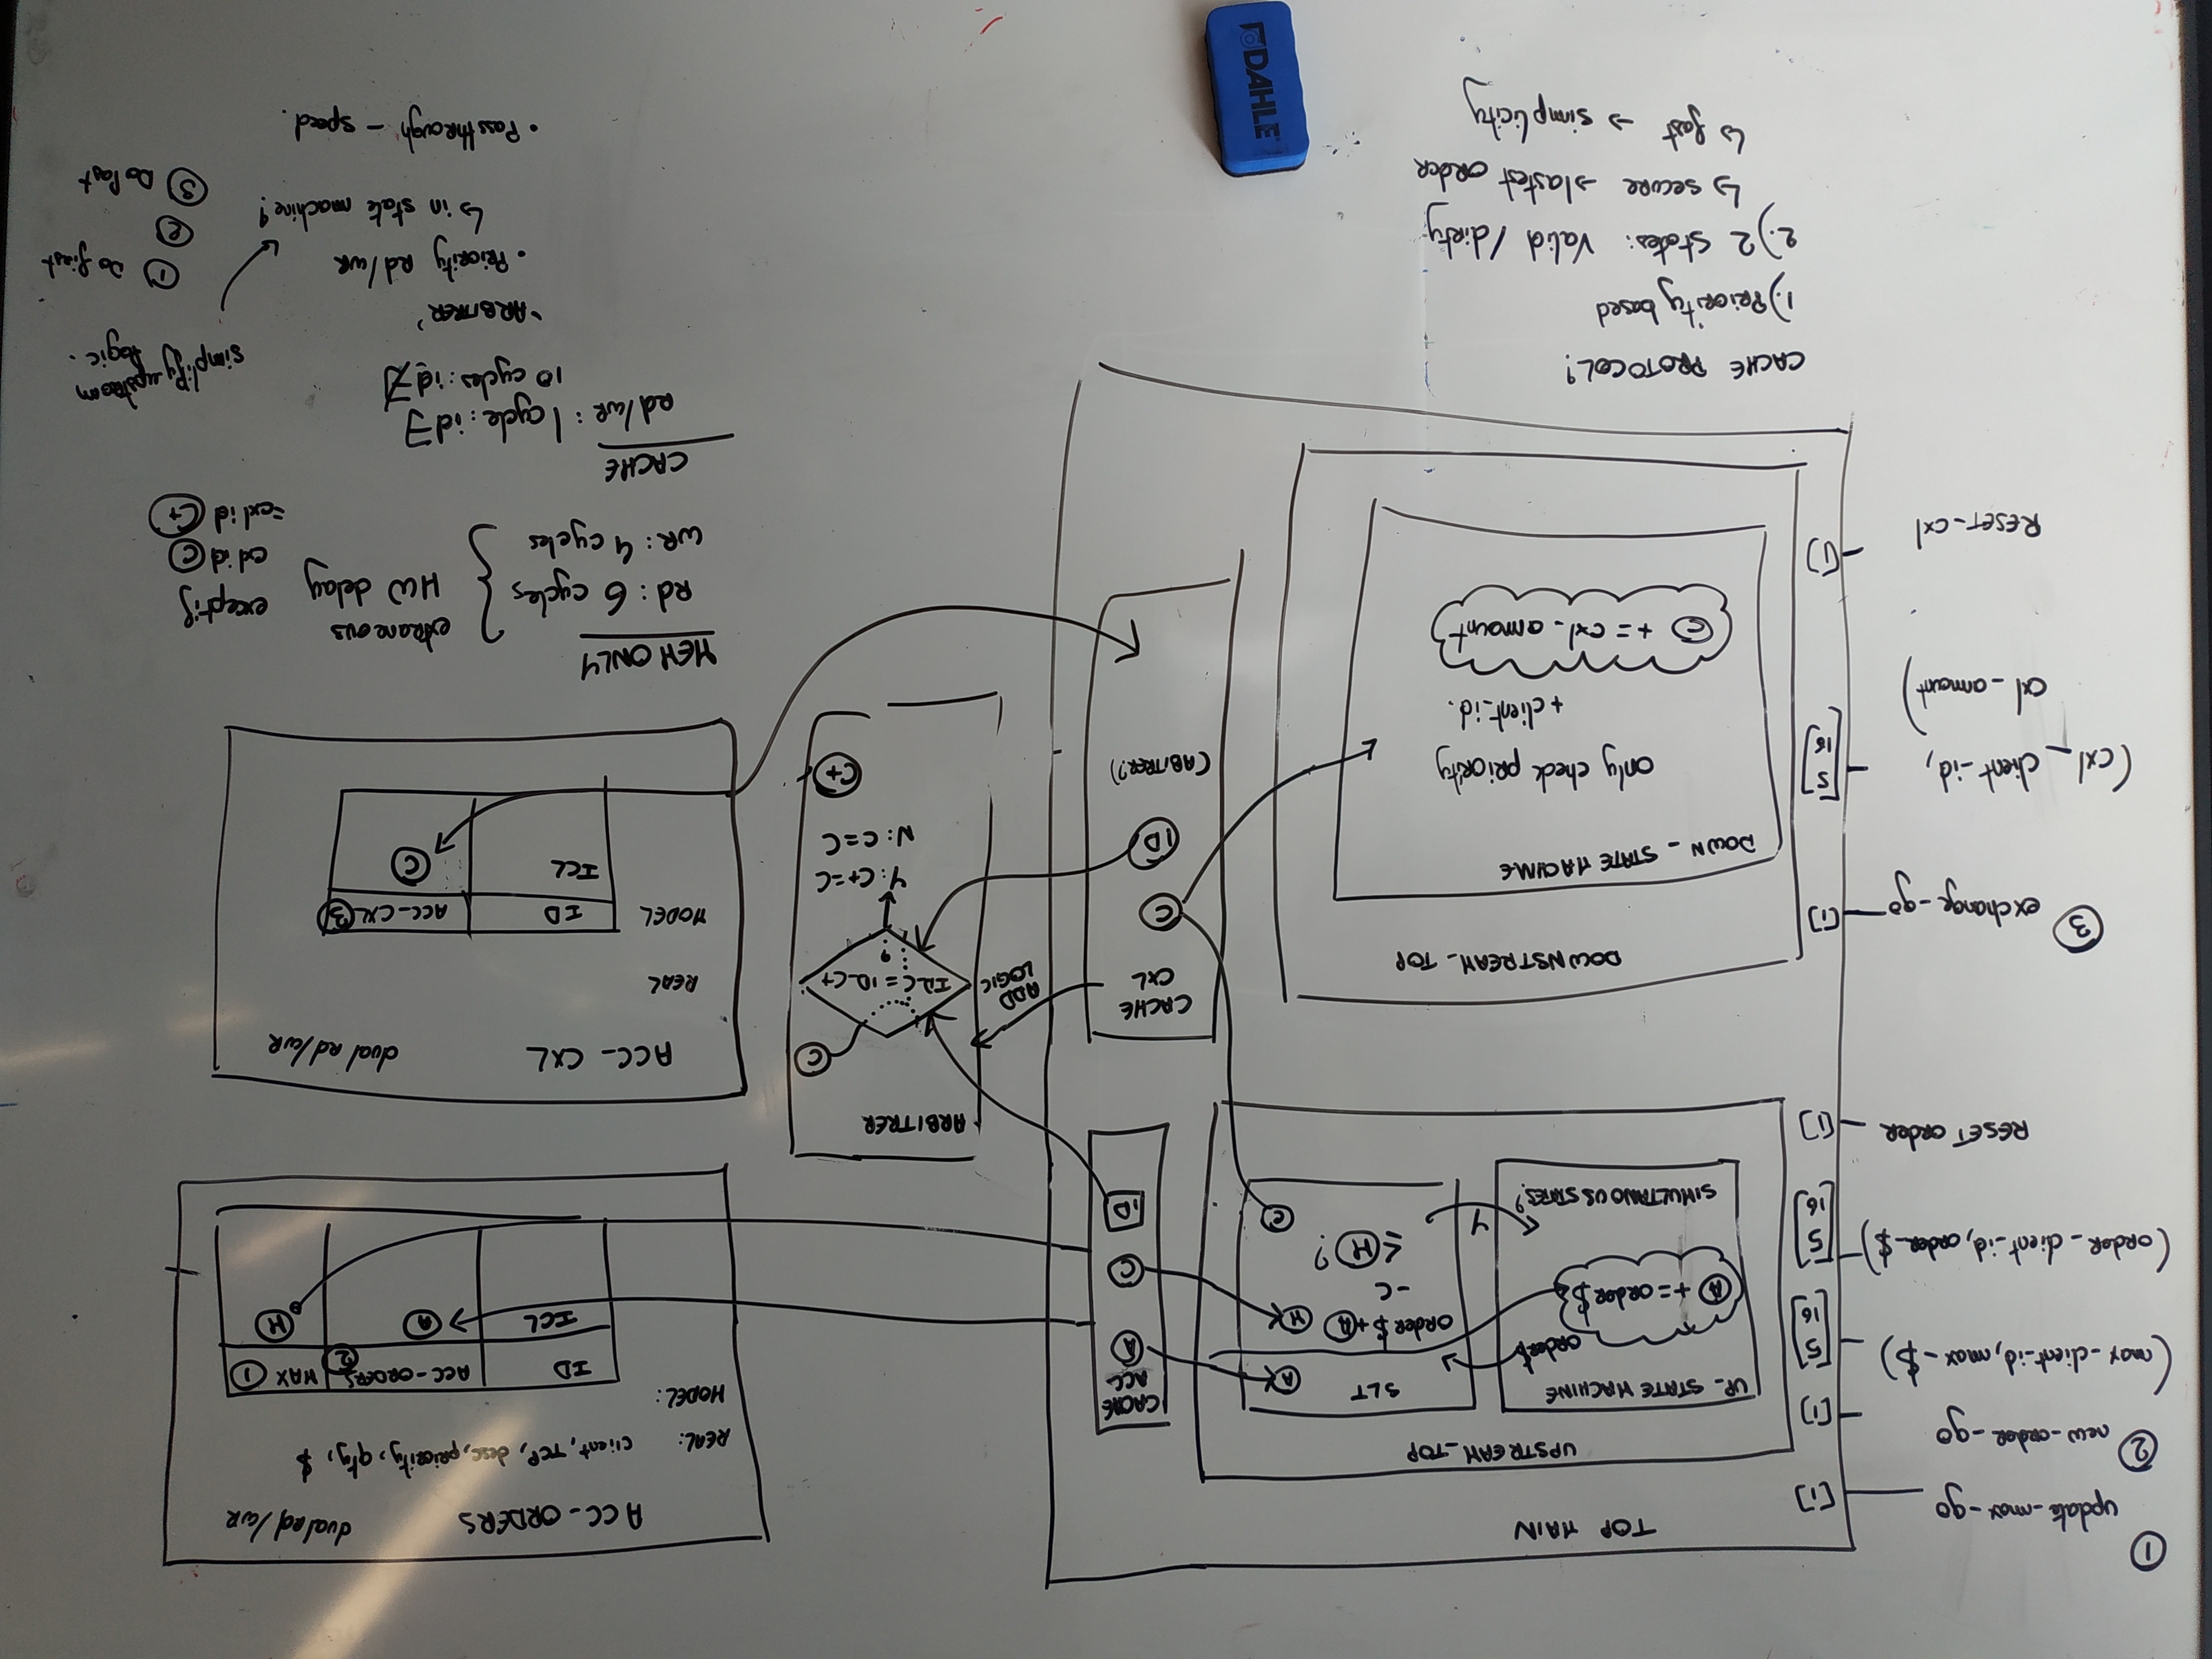 ①
update_max_go
②
new_order_go
(max_client_id, max_$)
(order_client_id, order_$)
RESET order
③
exchange_go
(cxl_client_id,
cxl_amount)
RESET_cxl
[1]
[1]
[5
16]
[5
16]
[1]
[1]
[5
16]
[1]
TOP MAIN
UPSTREAM_TOP
UP_STATE MACHINE
order$
Ⓐ += order$
SIMULTANOUS STATES?
SLT
Ⓐ
order$ + Ⓐ
Ⓜ
-C
≤ Ⓜ ?
Y
Ⓒ
CACHE
ACC
Ⓐ
Ⓒ
ID
DOWNSTREAM_TOP
DOWN_STATE MACHINE
only check priority
+ client_id.
Ⓒ += cxl_amount
CACHE
CXL
Ⓒ
ID
(ABITRER?)
ADD
LOGIC
ARBITRER
Ⓒ
ID_C = ID_C+
?
Y: C+=C
N: C=C
C+
ACC_ORDERS
dual rd/WR
REAL: client, TCP, desc, priority, qty, $
MODEL:
ID ACC-ORDERS ② MAX ①
ICL Ⓐ Ⓜ
ACC_CXL
dual Rd/WR
REAL
MODEL
ID ACC_CXL ③
ICL Ⓒ
MEM ONLY
Rd: 6 cycles
WR: 4 cycles
extraneous
HW delay
except if
cxl id Ⓒ
=cxl id C+
CACHE
Rd/WR: 1 cycle: id ∃
10 cycles: id ∄
simplify upstream
logic.
'ARBITRER'
• Priority Rd/WR
↳ in state machine?
• Passthrough – speed.
① Do first
②
③ Do last
CACHE PROTOCOL?
1.) Priority based
2.) 2 States: Valid / dirty
↳ secure → lastest order
↳ fast → simplicity
DAHLE